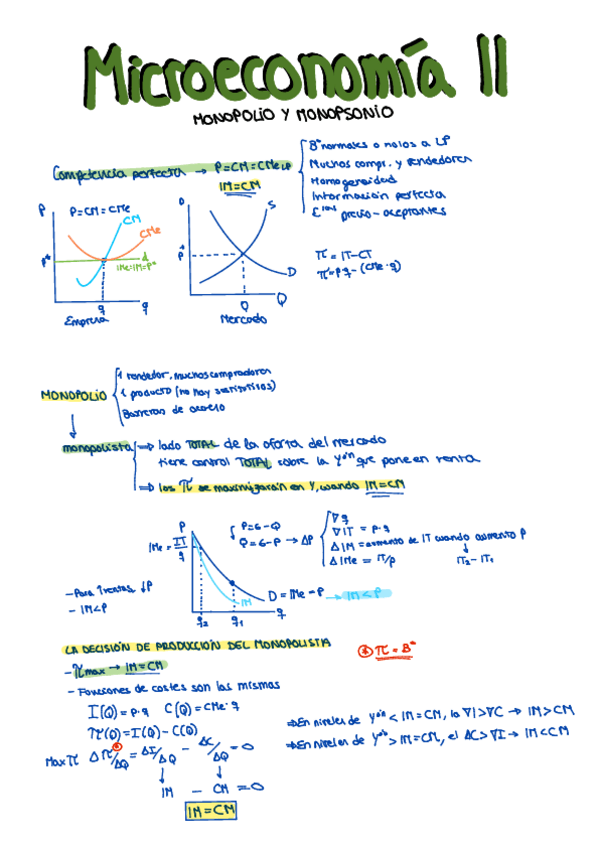 Microeconomía II
MONOPOLIO Y MONOPSONIO
Competencia perfecta → P=CM=CMe LP
IM=CM
Bº normales o nulos a LP
Muchos compr. y vendedores
Homogeneidad
Información perfecta
precio-aceptantes
P P=CM=CMe
CM
CMe
P* d
IMe=IM=P*
q q
Empresa
S
P*
D
Q Q
Mercado
π = IT-CT
π=P·q-(CMe·q)
MONOPOLIO
1 vendedor, muchos compradores
1 producto (no hay sustitutivos)
Barreras de acceso
monopolista ⇒ lado TOTAL de la oferta del mercado
tiene control TOTAL sobre la que pone en venta
⇒ los π se maximizarán en Y, cuando IM=CM
P
IMe = IT/q
P=6-Q
Q=6-P → ΔP
∇q
∇IT = P·q
Δ IM = aumento de IT cuando aumento P
Δ IMe = IT/P IT₂-IT₁
IM D = IMe = P → IM < P
q₂ q₁ q
- Para ↑ventas ↓P
- IM<P
LA DECISIÓN DE PRODUCCIÓN DEL MONOPOLISTA
* π = Bº
- π max → IM=CM
- Funciones de costes son las mismas
I(Q)=P·q C(Q)=CMe·q
π(Q)=I(Q)-C(Q)
Max π Δπ/ΔQ = ΔI/ΔQ - ΔC/ΔQ = 0
IM - CM = 0
IM=CM
⇒ En niveles de < IM=CM, la ∇I>∇C → IM>CM
⇒ En niveles de > IM=CM, el ΔC>∇I → IM<CM